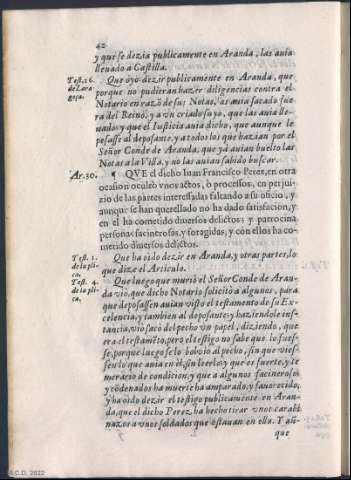 42
y que se dezia publicamente en Aranda, las auia
lleuado a Castilla.
Test. 26. de Zaragoça.
Que oyo dezir publicamente en Aranda, que
porque no pudieran hazer diligencias contra el
Notario en razõ de sus Notas, las auia sacado fue
ra del Reino, y a vn criado suyo, que las auia lle
uado, y que el Iusticia auia dicho, que aunque le
pesasse al deposante, y a todos los que hazian por el
Señor Conde de Aranda, que ya auian buelto las
Notas a la Villa, y no las auian sabido buscar.
Ar. 30.
¶ QVE el dicho Iuan Francisco Perez, en otra
ocasion ocultò vnos actos, ò procesos, en perjui-
zio de las partes interessadas faltando a su oficio, y
aunque se han querellado no ha dado satisfacion, y
en el ha cometido diuersos delictos y patrocina
personas facinerosas, y foragidas, y con ellos ha co-
metido diuersos delictos.
Test. 1. de la plica.
Que ha oido dezir en Aranda, y otras partes, lo
que dize el Articulo.
Test. 4. de la plica,
Que luego que murió el Señor Conde de Aran-
da vio, que dicho Notario solicitò a algunos, para
que depossassen auian visto el testamento de su Ex-
celencia, y tambien al deposante; y haziendole ins-
tancia, vio sacò del pecho vn papel, diziendo, que
era el testamẽto, pero el testigo no sabe que lo fues-
se, porque luego se lo bolvio al pecho, sin que vies-
sen lo que auia en èl, sin leerlo; y que es fuerte, y te
merario de condicion; y que a algunos facinerosos
y cõdenados ha muerte ha amparado, y fauorecido,
y ha oido dezir el testigo publicamente en Aran-
da, que el dicho Perez, ha hecho tirar vnos carabi
nazos a vnos soldados que estauan en ella. Y aun-
que
A.C.D. 2022